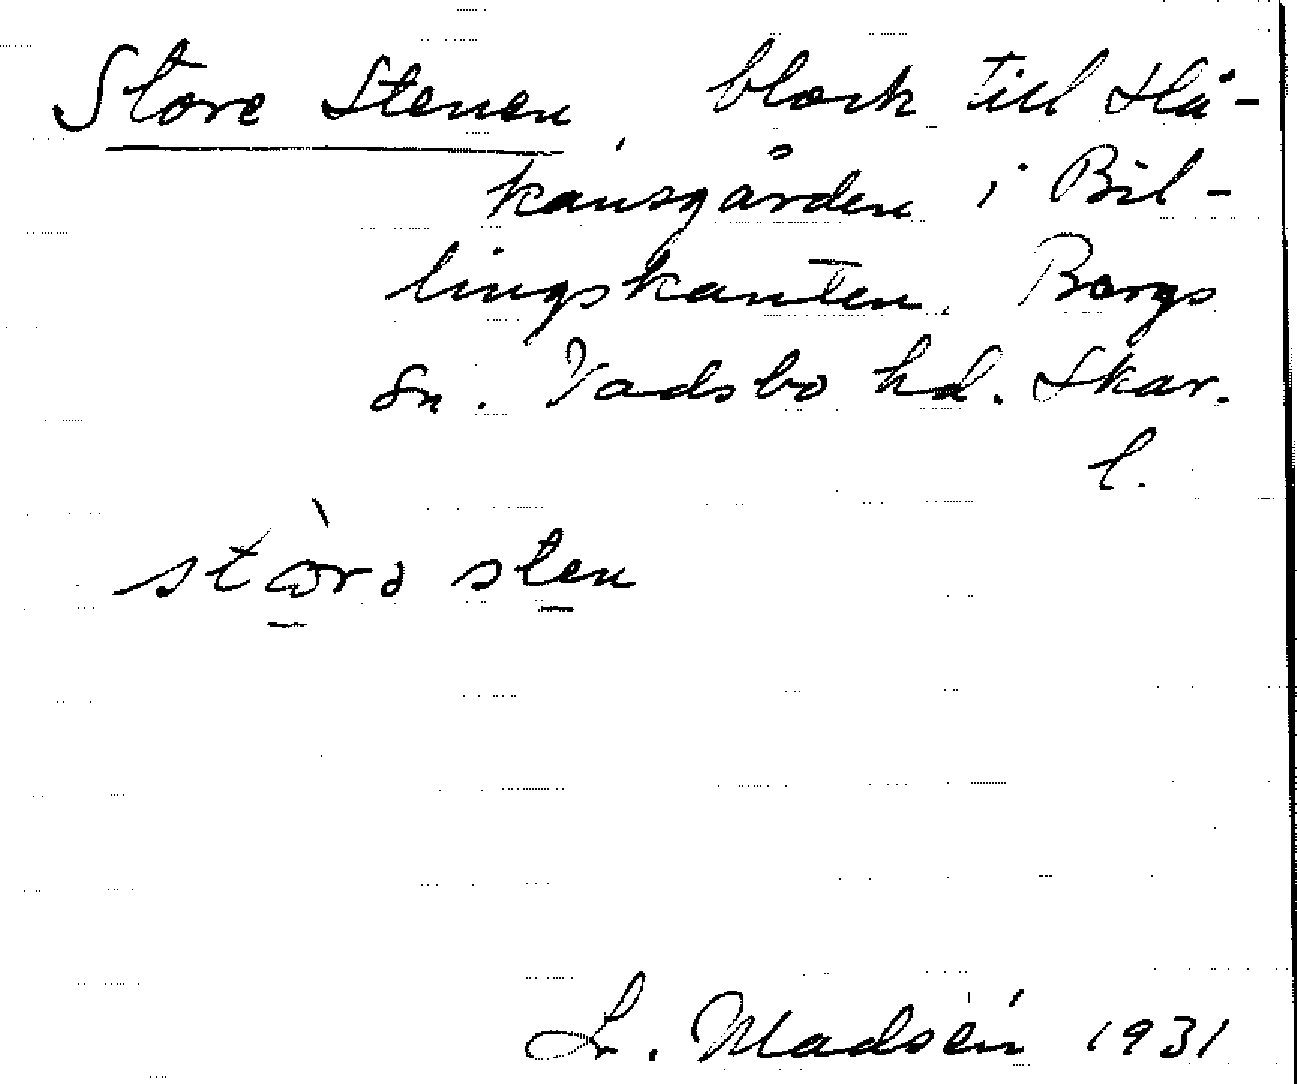 Store Stenen, block till Hå-
kansgården i Bil-
lingskanten. Bergs
sn. Vadsbo hd. Skar.
l.
störə sten
L. Madsén 1931